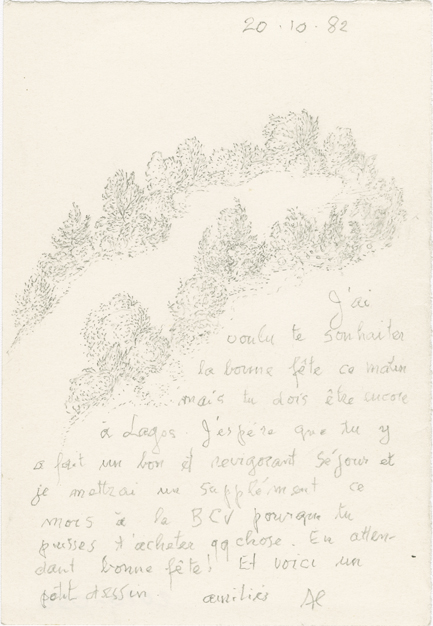 20.10.82
J'ai
voulu te souhaiter
la bonne fête ce matin
mais tu dois être encore
à Lagos. J'espère que tu y
a fait un bon et revigorant séjour et
je mettrai un supplément ce
mois à la BCV pour que tu
puisses t'acheter qq chose. En atten-
dant bonne fête! Et voici un
petit dessin. amitiés